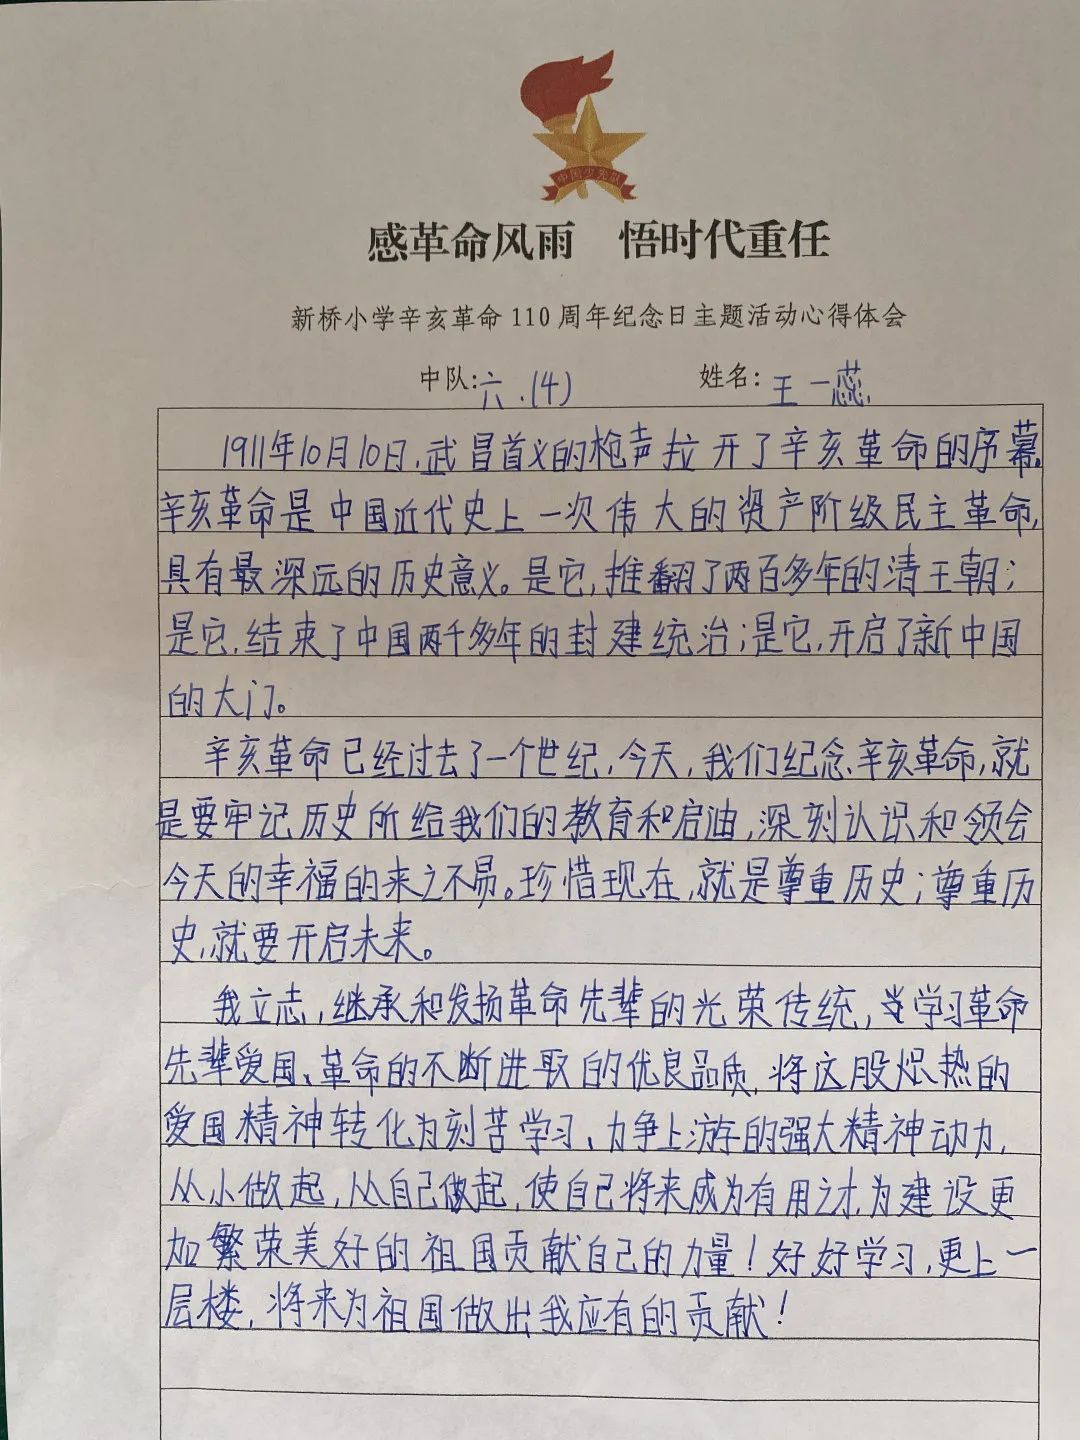 中国少先队
感革命风雨 悟时代重任
新桥小学辛亥革命110周年纪念日主题活动心得体会
中队:六.(4) 姓名:王一蕊
1911年10月10日,武昌首义的枪声拉开了辛亥革命的序幕,
辛亥革命是中国近代史上一次伟大的资产阶级民主革命,
具有最深远的历史意义。是它,推翻了两百多年的清王朝;
是它,结束了中国两千多年的封建统治;是它,开启了新中国
的大门。
辛亥革命已经过去了一个世纪,今天,我们纪念辛亥革命,就
是要牢记历史所给我们的教育和启迪,深刻认识和领会
今天的幸福的来之不易。珍惜现在,就是尊重历史;尊重历
史,就要开启未来。
我立志,继承和发扬革命先辈的光荣传统,学习革命
先辈爱国、革命的不断进取的优良品质,将这股炽热的
爱国精神转化为刻苦学习、力争上游的强大精神动力,
从小做起,从自己做起,使自己将来成为有用之才,为建设更
加繁荣美好的祖国贡献自己的力量!好好学习,更上一
层楼,将来为祖国做出我应有的贡献!